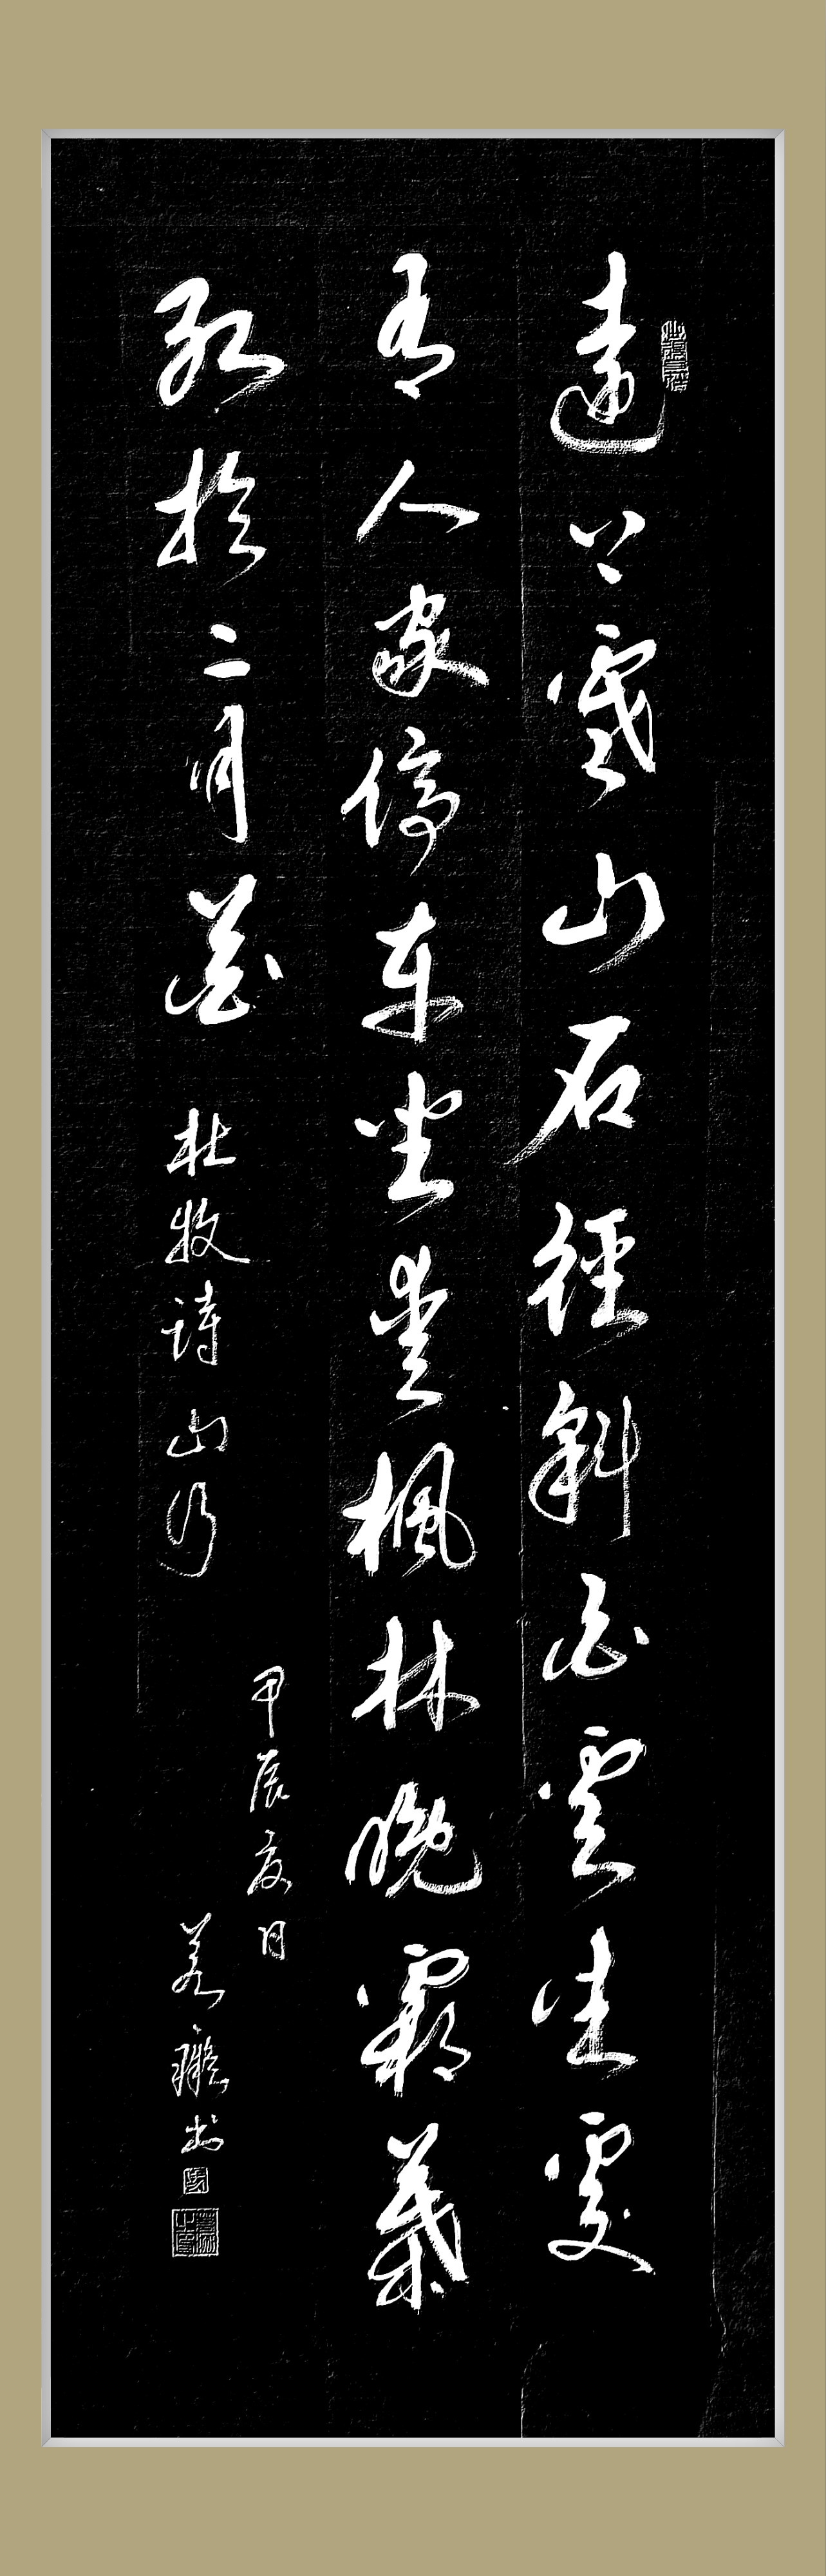 遠上寒山石徑斜白雲生處
有人家停車坐愛楓林晚霜葉
紅於二月花 杜牧诗 山行
甲辰夏月
书